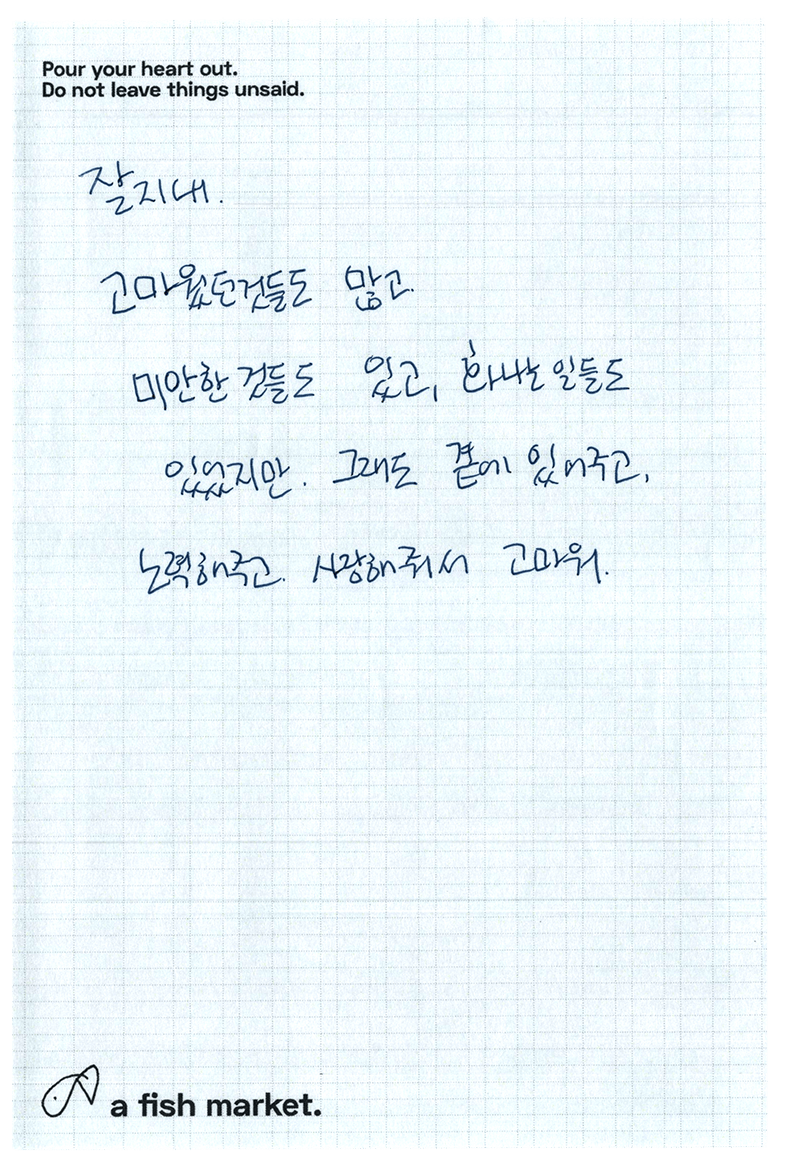 Pour your heart out.
Do not leave things unsaid.
잘지내.
고마웠던것들도 많고.
미안한 것들도 있고, 화나는 일들도
있었지만. 그래도 곁에 있어주고,
노력해주고. 사랑해줘서 고마워.
a fish market.